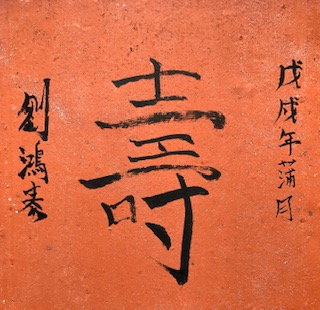 戊戌年蒲月
壽
劉鴻泰